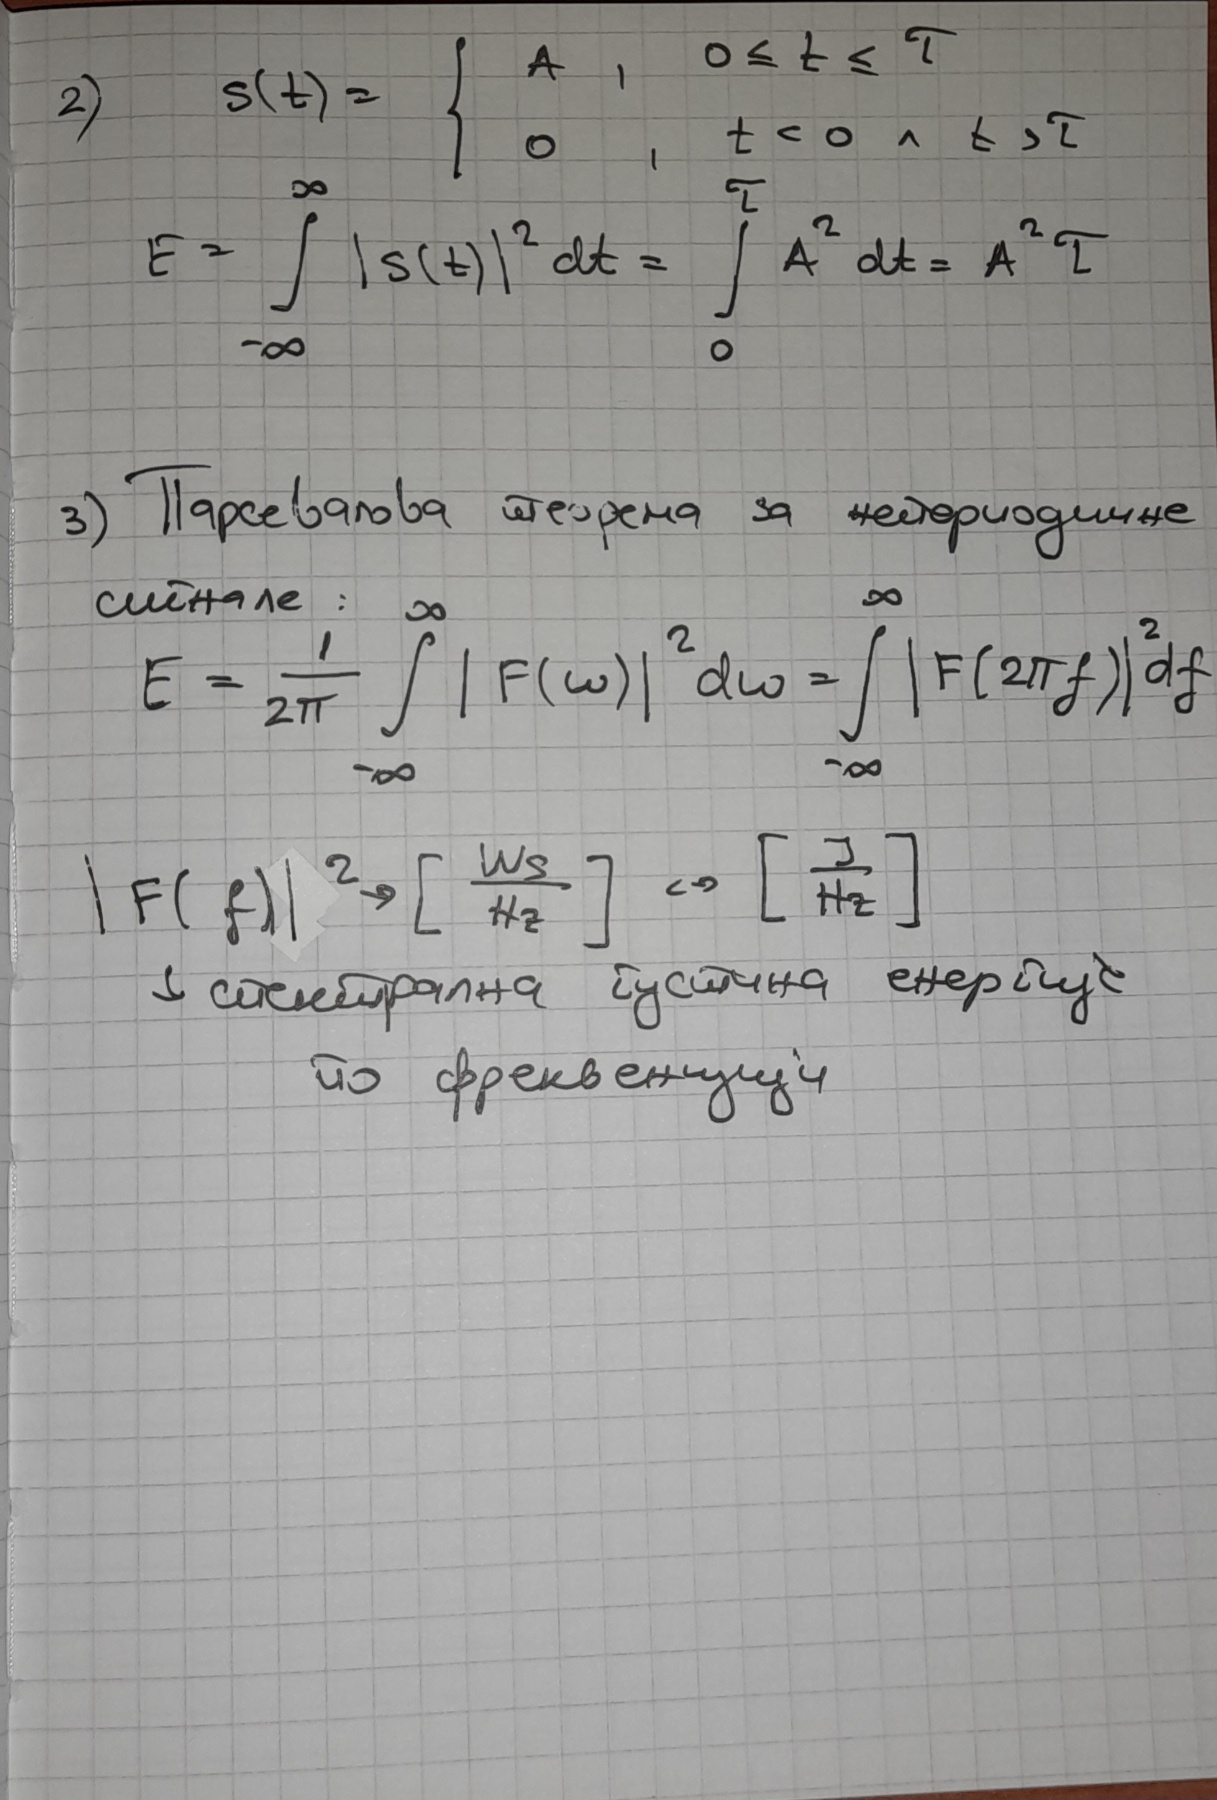 2) s(t) = { A , 0 ≤ t ≤ τ
0 , t < 0 ∧ t > τ
E = ∫_{-∞}^{∞} |s(t)|² dt = ∫_{0}^{τ} A² dt = A² τ
3) Парсевалова теорема за непериодичне
сигнале :
E = 1/2π ∫_{-∞}^{∞} |F(ω)|² dω = ∫_{-∞}^{∞} |F(2πf)|² df
|F(f)|² → [Ws/Hz] ↔ [J/Hz]
↳ спектрална густина енергије
по фреквенцији